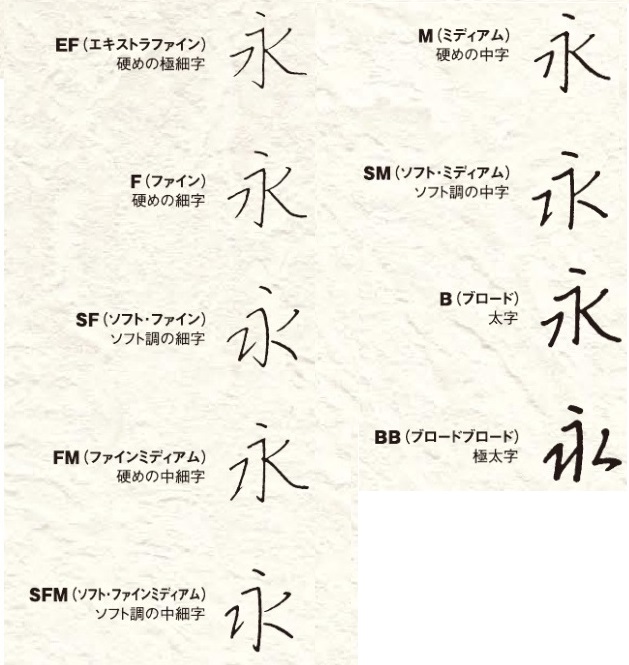 EF(エキストラファイン)
硬めの極細字
永
F(ファイン)
硬めの細字
永
SF(ソフト・ファイン)
ソフト調の細字
永
FM(ファインミディアム)
硬めの中細字
永
SFM(ソフト・ファインミディアム)
ソフト調の中細字
永
M(ミディアム)
硬めの中字
永
SM(ソフト・ミディアム)
ソフト調の中字
永
B(ブロード)
太字
永
BB(ブロードブロード)
極太字
永